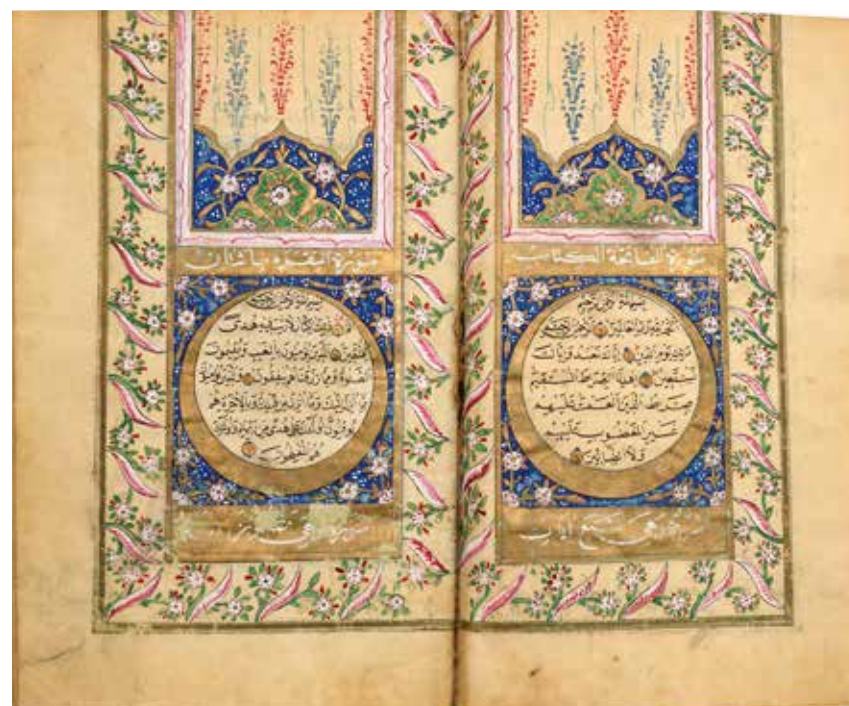 سورة الفاتحة الكتاب
بسم الله الرحمن الرحيم
الحمد لله رب العالمين الرحمن الرحيم
مالك يوم الدين اياك نعبد واياك
نستعين اهدنا الصراط المستقيم
صراط الذين انعمت عليهم
غير المغضوب عليهم
ولا الضالين
وهي سبع آيات
سورة البقرة مائتان
بسم الله الرحمن الرحيم
الم ذلك الكتاب لا ريب فيه هدى
للمتقين الذين يؤمنون بالغيب ويقيمون
الصلوة ومما رزقناهم ينفقون والذين يؤمنون
بما انزل اليك وما انزل من قبلك وبالآخرة هم
يوقنون اولئك على هدى من ربهم واولئك
هم المفلحون